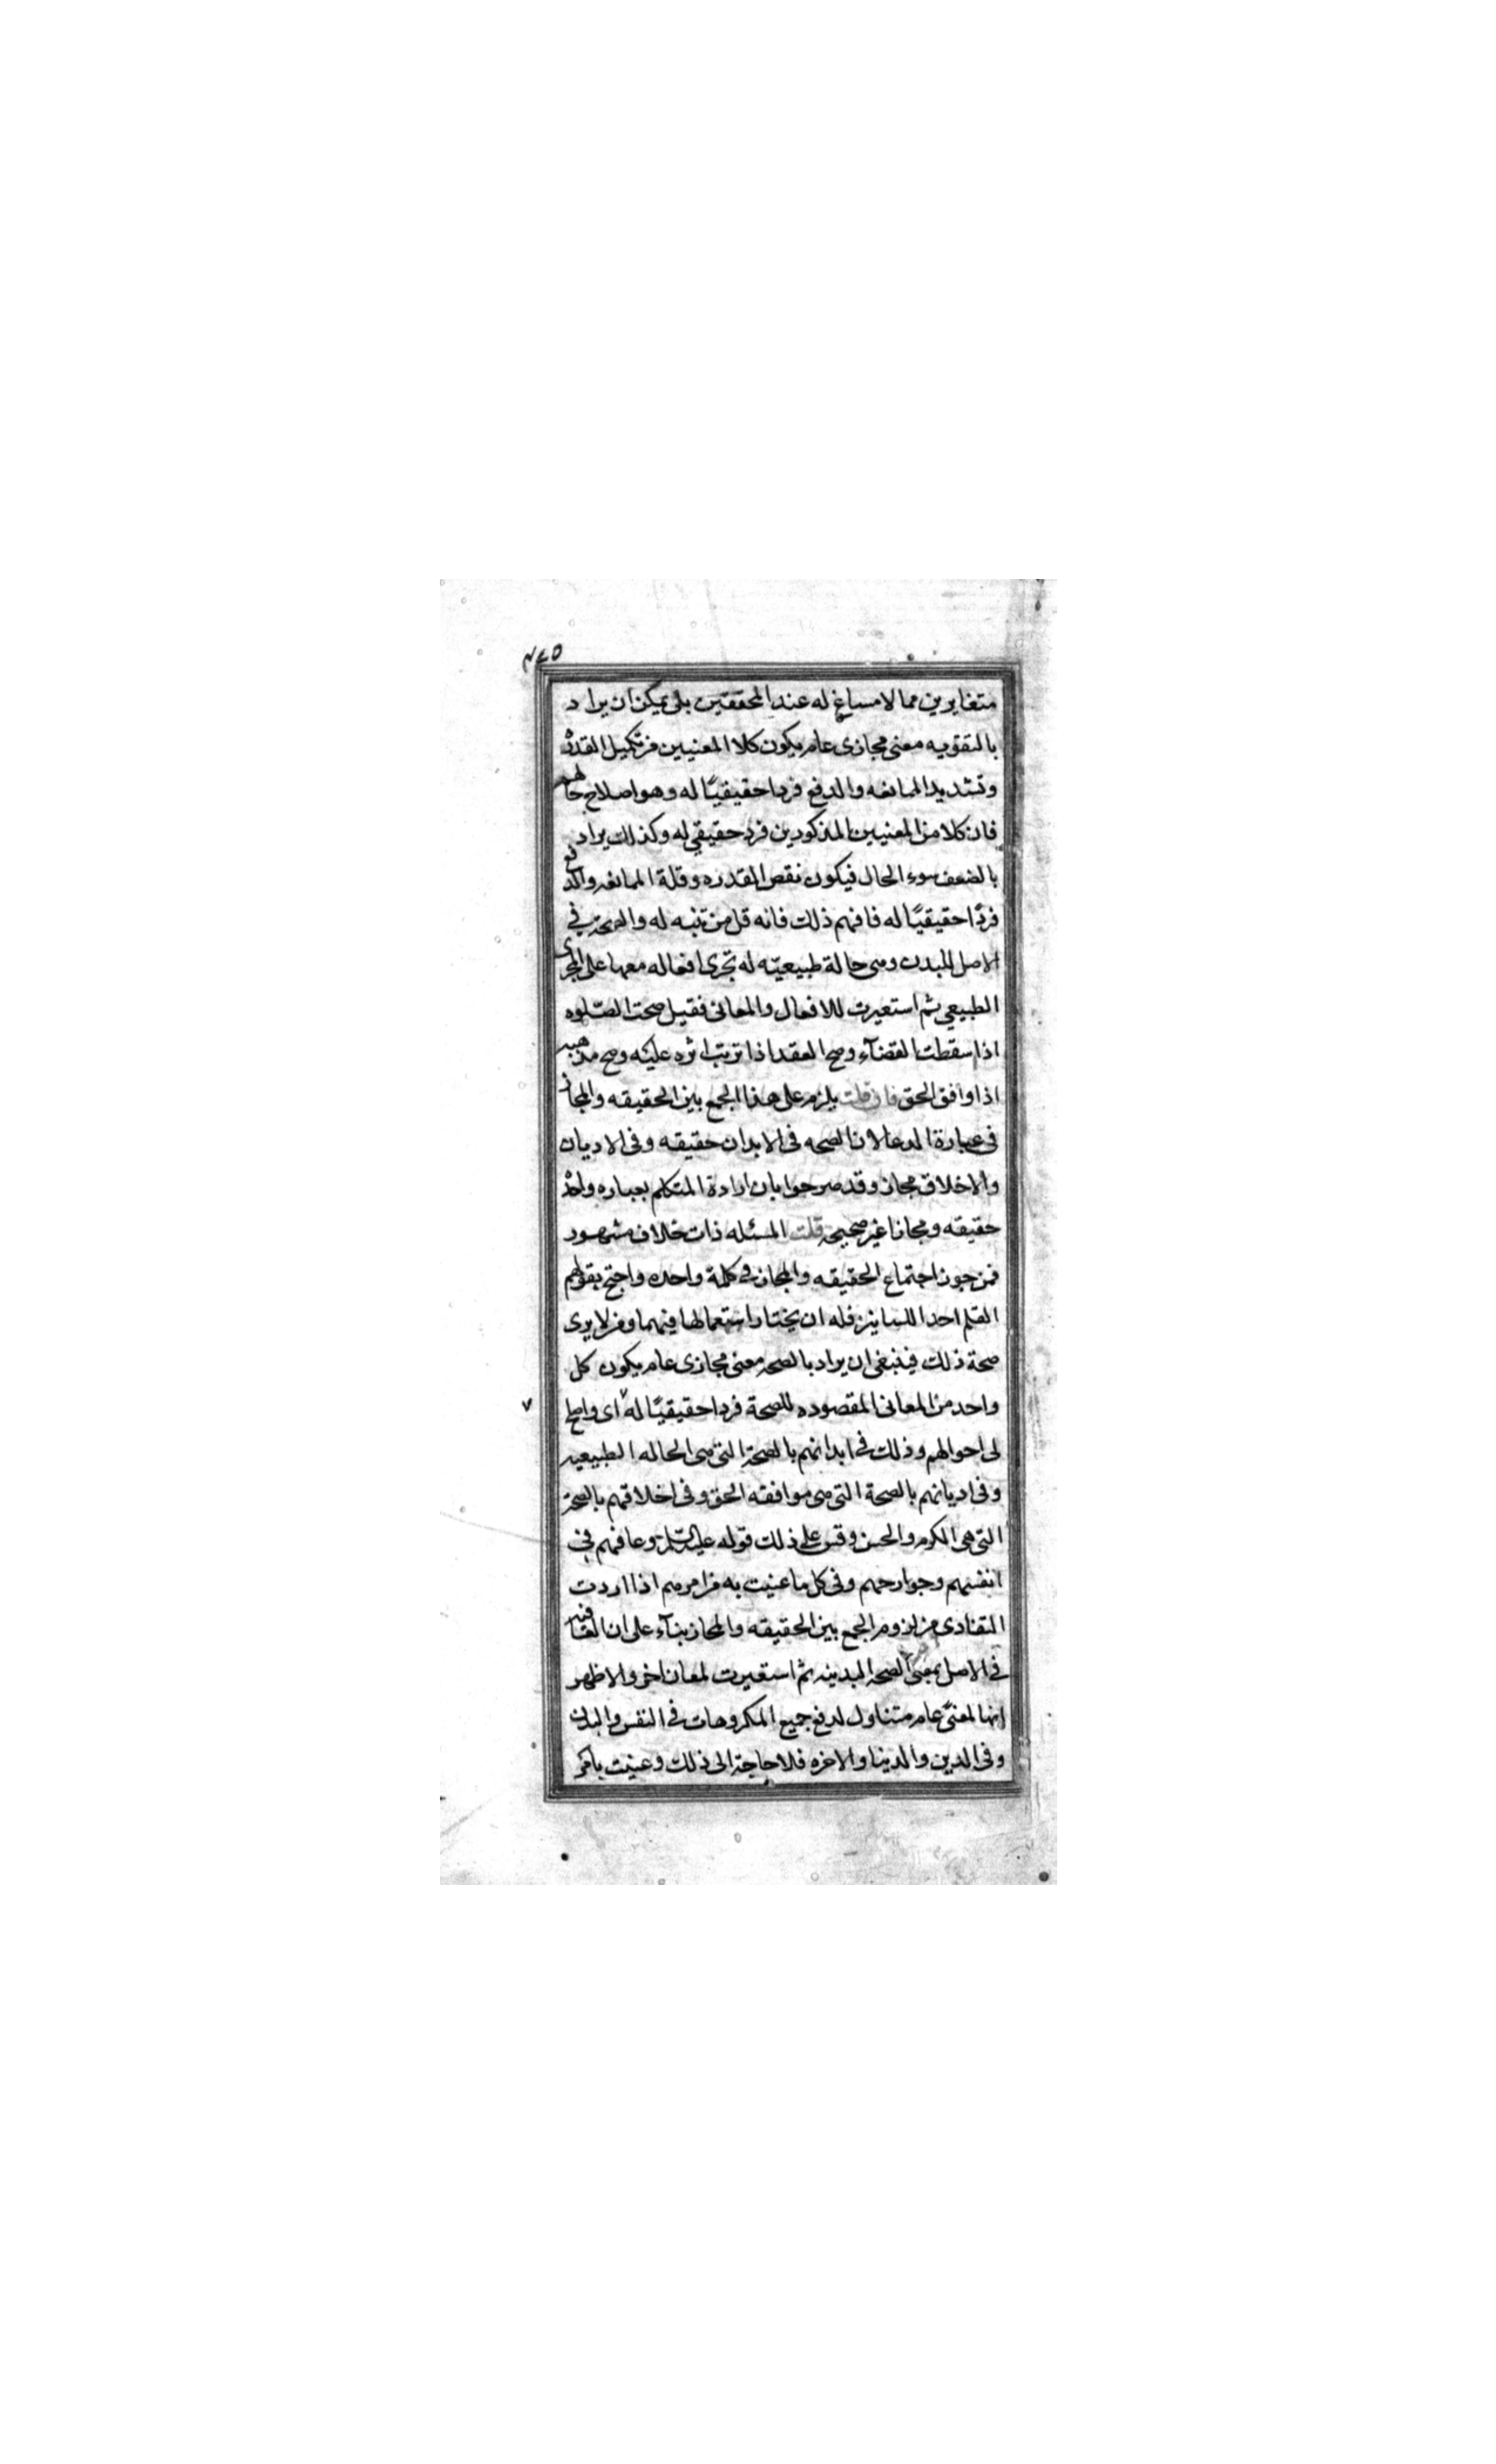 ٩٤٥
متغايرين مما لا مساغ له عند المحققين بلى يمكن ان يراد
بالتقويه معنى مجازى عام يكون كلا المعنيين من تكميل القدرة
وتشديد الممانعه والدفع فردا حقيقيًا له وهو اصلاح حالهم
فان كلا من المعنيين المذكورين فرد حقيقي له وكذلك يراد
بالضعف سوء الحال فيكون نقص القدره وقلة الممانعه والدفع
فردًا حقيقيًا له فافهم ذلك فانه قل من تنبه له والصحة في
الاصل للبدن وهى حالة طبيعيّه له تجرى افعاله معها على المجرى
الطبيعي ثم استعيرت للافعال والمعانى فقيل صحت الصّلوه
اذا سقطت القضآء وصح العقد اذا ترتب اثره عليه وصح مذهبه
اذا وافق الحق فان قلت يلزم على هذا الجمع بين الحقيقه والمجاز
فى عبارة الدعا لان الصحه فى الابدان حقيقه وفى الاديان
والاخلاق مجاز وقد صرحوا بان ارادة المتكلم بعباره واحدة
حقيقه ومجازا غير صحيحه قلت المسئله ذات خلاف مشهور
فمن جوز اجتماع الحقيقه والمجاز في كلمة واحده واحتج بقولهم
القلم احد اللسانين فله ان يختار استعمالها فيهما ومن لا يرى
صحة ذلك فينبغى ان يراد بالصحه معنى مجازى عام يكون كل
واحد من المعانى المقصوده للصحة فردا حقيقيًا له اى واصلح ٧
لى احوالهم وذلك في ابدانهم بالصحة التى هى الحاله الطبيعيه
وفى اديانهم بالصحة التى هى موافقه الحق وفى اخلاقهم بالصحة
التى هى الكرم والحسن وقس على ذلك قوله عليه السّلم وعافهم في
انفسهم وجوارحهم وفى كل ما عنيت به من امرهم اذا اردت
التفادى من لزوم الجمع بين الحقيقه والمجاز بنآء على ان العافيه
في الاصل بمعنى الصحه البدنيه ثم استعيرت لمعان اخر والاظهر
انها لمعنًى عام متناول لدفع جميع المكروهات في النفس والبدن
وفى الدين والدنيا والاخره فلا حاجة الى ذلك وعنيت بامر